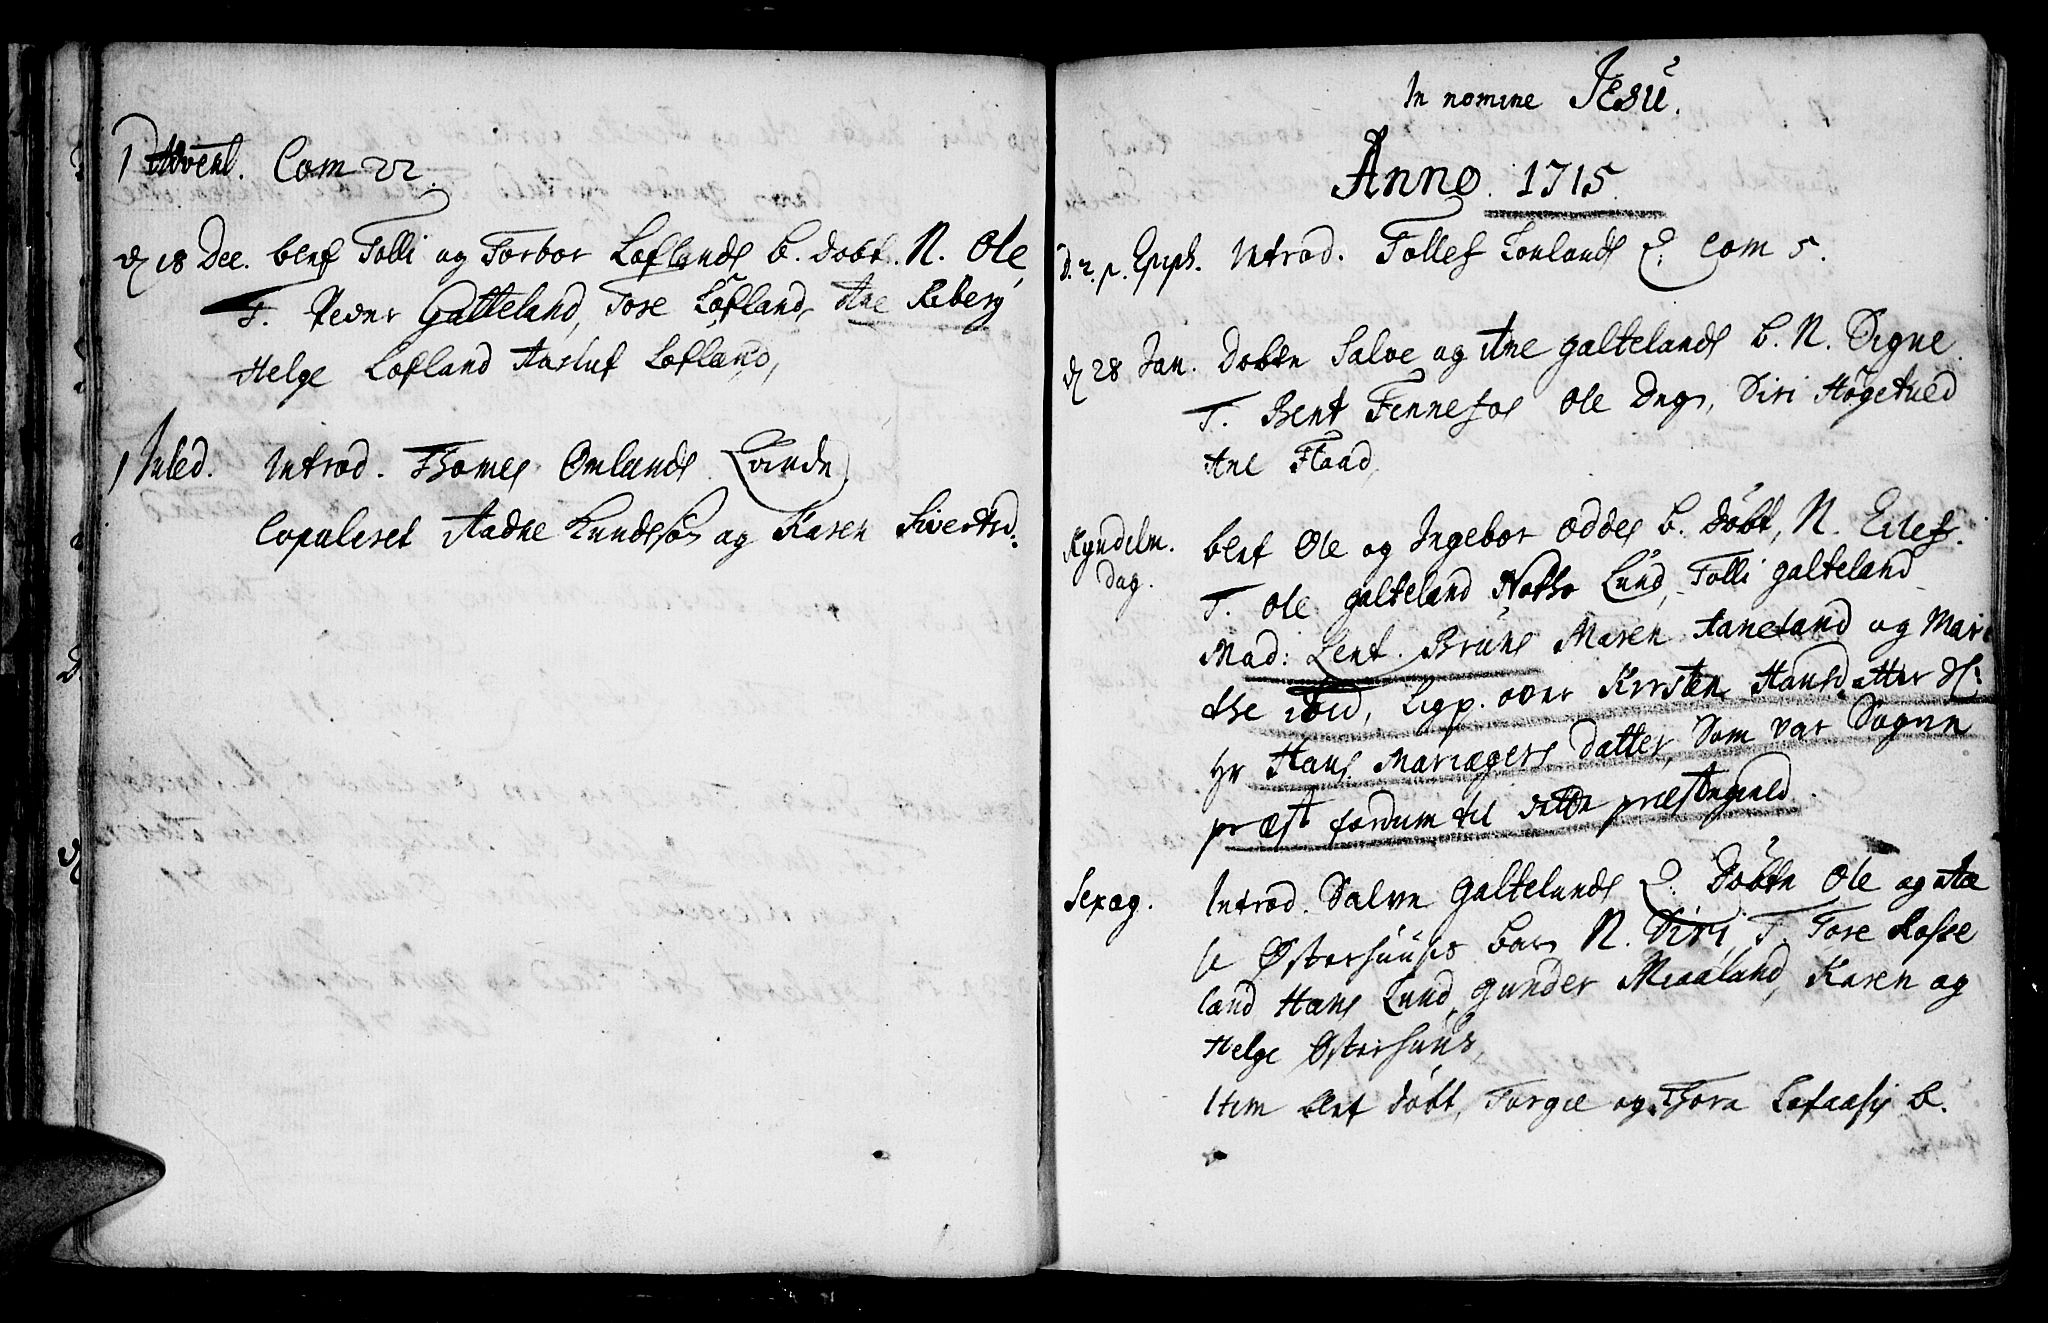 1 Advent. Com 22.
d 18 Dec. blef Tolli og Torbor Loflands B. dobt. N. Ole,
T. Peder Galteland, Tore Lofland, Ane Riberg
Helge Lofland Aasluf Lofland,
1 Juled. Introd. Thomes Omlands
Copuleret Aadne Knudsøn og Karen Sivertsd.
In nomine Jesu.
Anno. 1715.
D. 2. p. Epiph. Introd. Tollef Lonlands Q. Com 5.
d 28 Jan. Dobte Salve og Ane galtelands B. N. Signe.
T. Bent Fennefos Ole Siri Høgetued
Ane Flaad,
Kyndelm. dag. blef Ole og Ingebor Oddes B. døbt, N. Ellef.
T. Ole galteland Lund, Tolli galteland
Mad: Lent. Bruns Maren Aaneland og Mari
the ibid, Ligp. over Kirsten Hansdatter Sl:
Hr Hans Mariagers datter, Som var Sogne
præst fordum til dette præstegield.
Sexag. Introd. Salve galtelands Q. Døbte Ole og Aa
se Østerhuusis barn N. Siri, T. Tore Rosse
land Hans Lund, gunder Miaaland, Karen og
Helge Østerhuus,
Item blef døbt, Torge og Thora Lofaasis B.